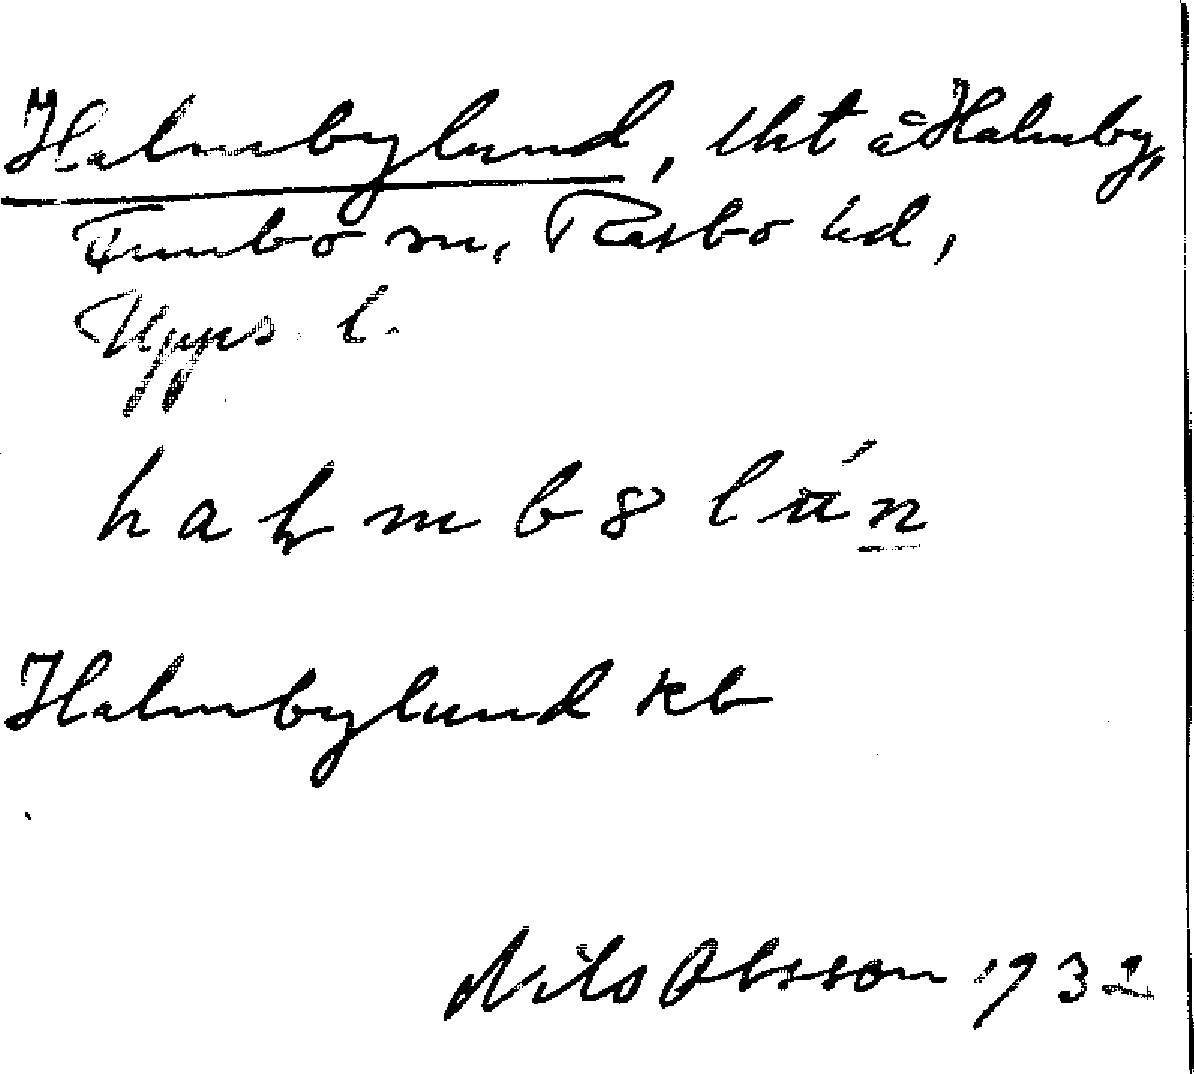 Halmbylund, lht å Halmby,
Funbo sn, Rasbo hd,
Upps. l.
Halmbylund kb
Nils Olsson 1932